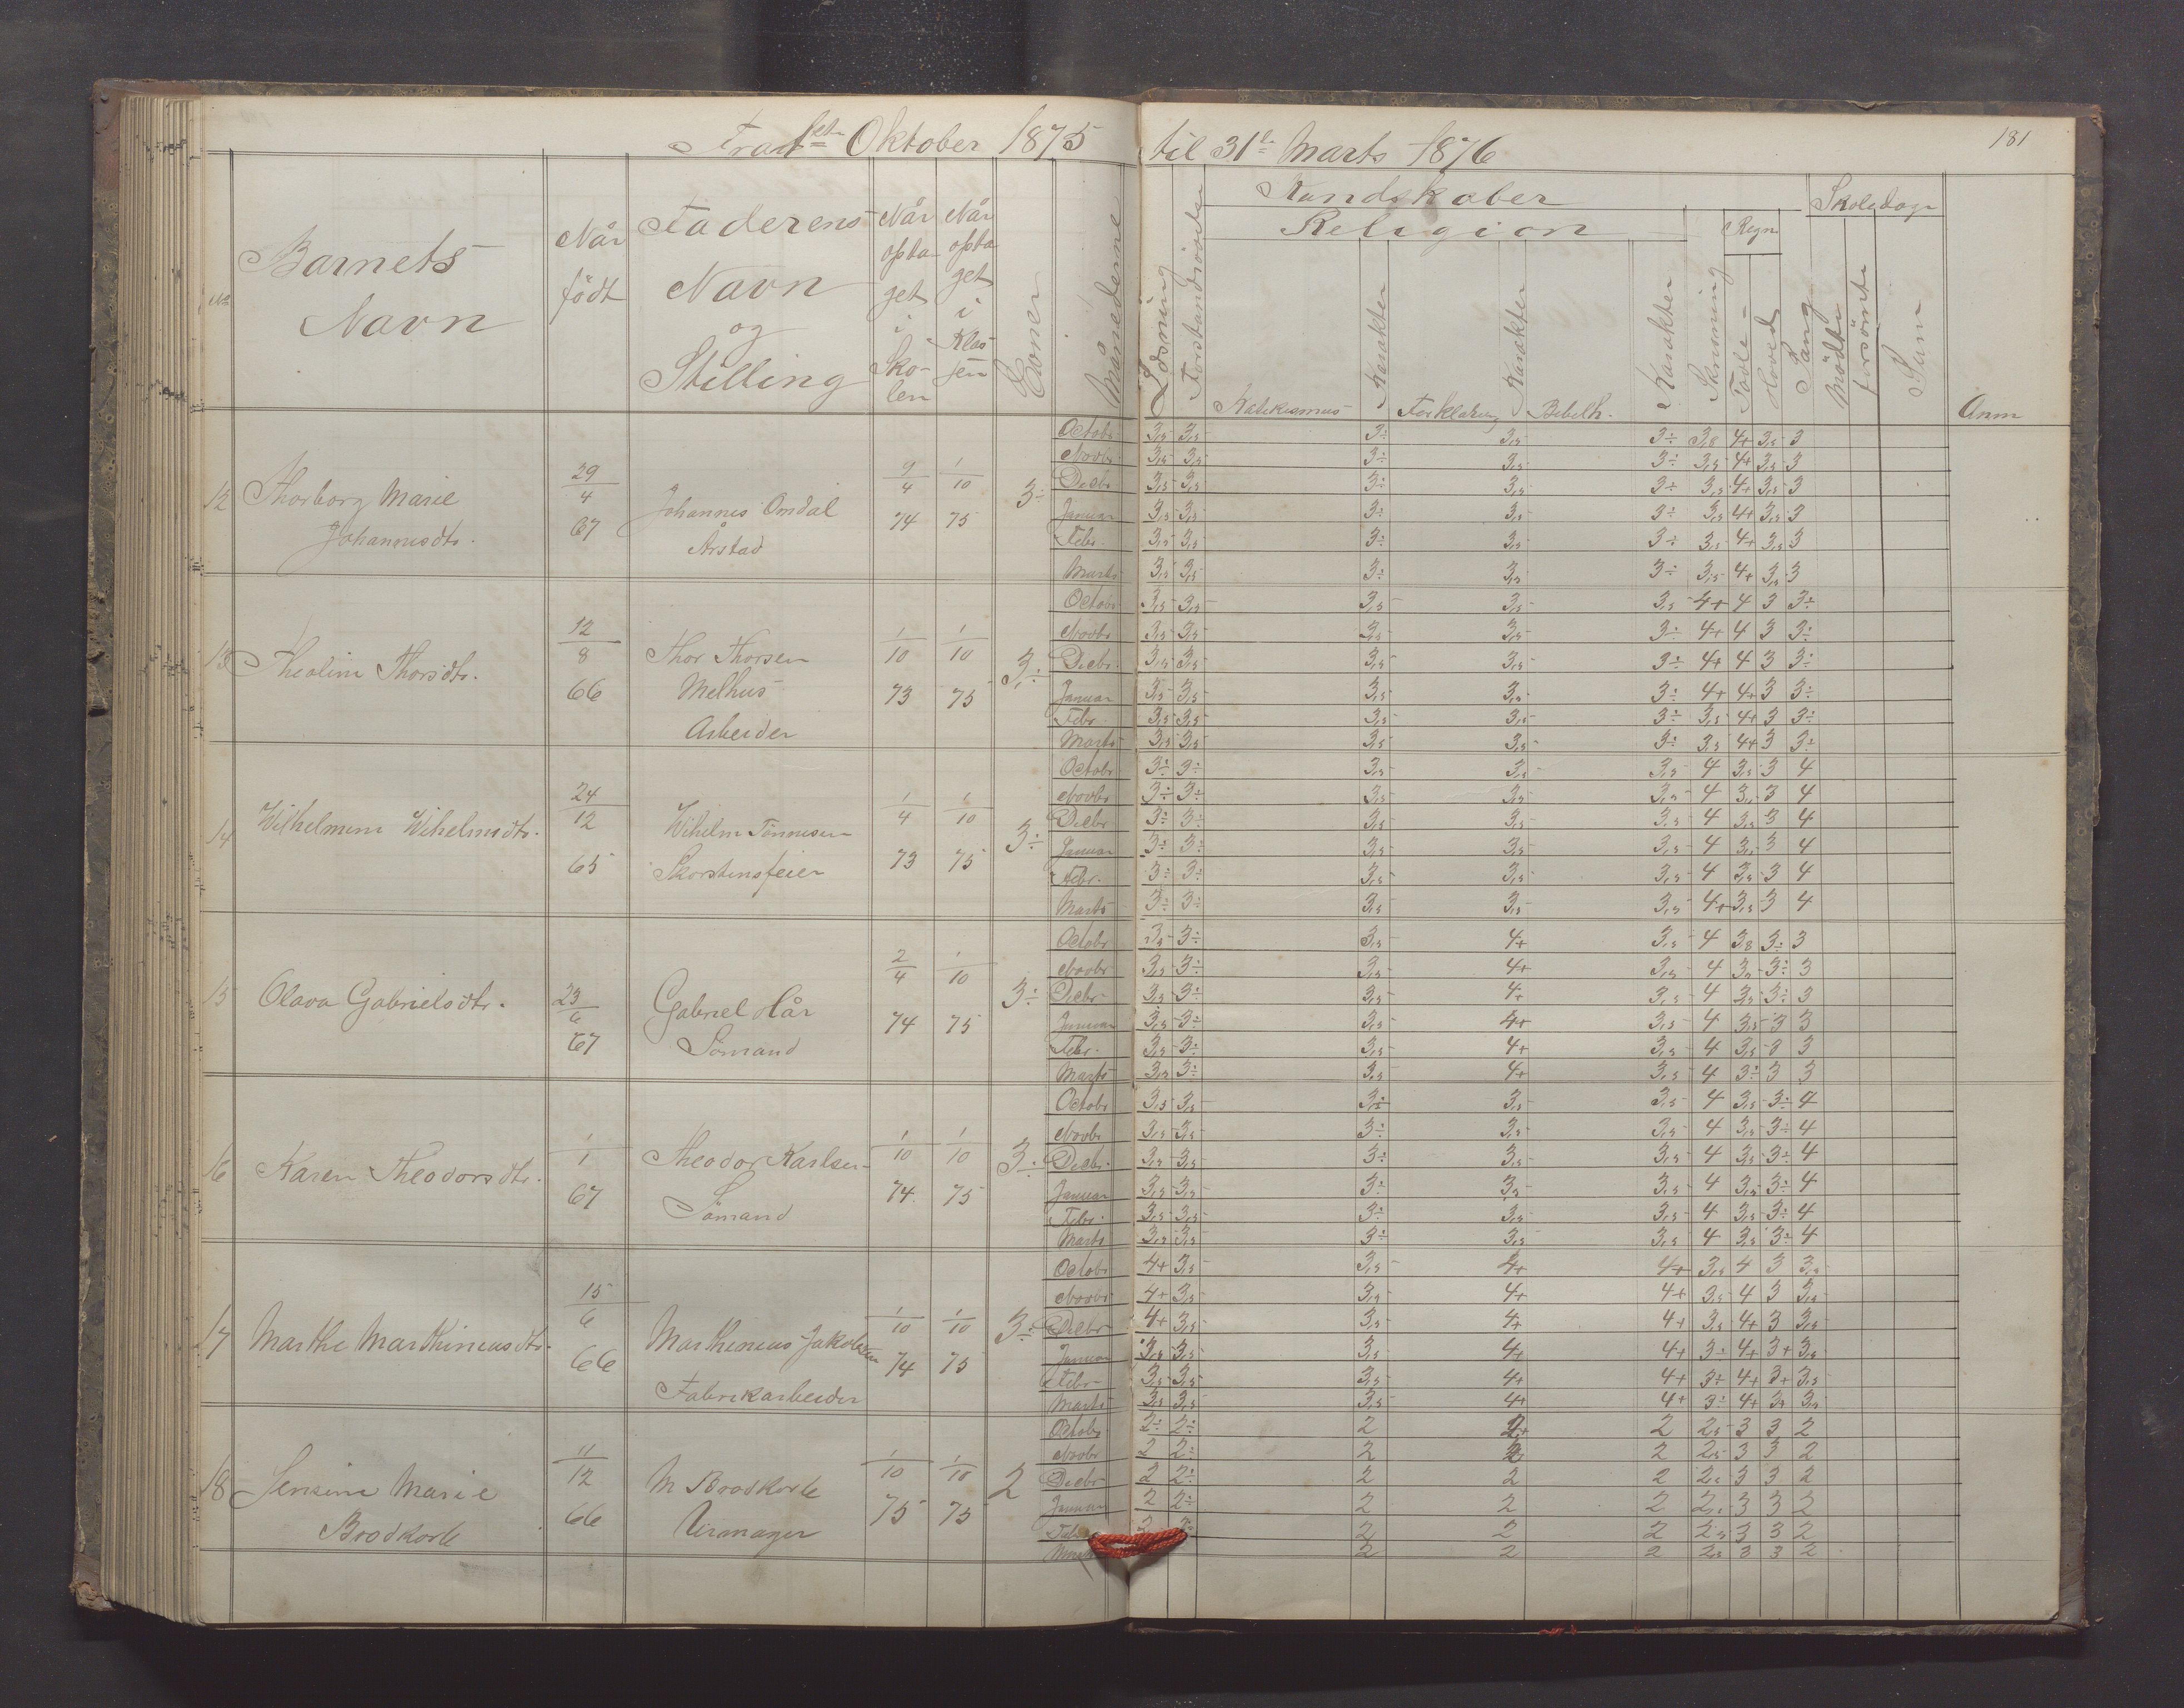 Fra 1ste Oktober 1875 til 31te Marts 1876
181
No
Barnets Navn
Når født
Faderens Navn og Stilling
Når optaget i Skolen
Når optaget i Klassen
Evner
Månederne
Læsning
Forstandsøvelse
Kundskaber
Religion
Katekismus
Karakter
Forklaring
Karakter
Bibelh.
Karakter
Skrivning
Regn
Tavle
Hoved
Sang
Skoledage
Mödte
forsömte
Sum
Anm
12 Thorborg Marie Johannesdtr. 29/4 67 Johannes Omdal Årstad 9/4 74 1/10 75 3÷
Octobr 3,5 3,5 3÷ 3,5 3÷ 3,8 4+ 3,5 3
Novbr 3,5 3,5 3÷ 3,5 3÷ 3,5 4+ 3,5 3
Decbr 3,5 3,5 3÷ 3,5 3÷ 3,5 4+ 3,5 3
Januar 3,5 3,5 3÷ 3,5 3÷ 3,5 4+ 3,5 3
Febr. 3,5 3,5 3÷ 3,5 3÷ 3,5 4+ 3,5 3
Marts 3,5 3,5 3÷ 3,5 3÷ 3,5 4+ 3,5 3
13 Theoline Thorsdtr. 12/8 66 Thor Thorsen Melhus Arbeider 1/10 73 1/10 75 3÷
Octobr 3,5 3,5 3,5 3,5 3,5 4+ 4 3 3÷
Novbr 3,5 3,5 3,5 3,5 3÷ 4+ 4 3 3÷
Decbr 3,5 3,5 3,5 3,5 3÷ 4+ 4 3 3÷
Januar 3,5 3,5 3,5 3,5 3÷ 4+ 4+ 3 3÷
Febr 3,5 3,5 3,5 3,5 3÷ 3,5 4+ 3 3÷
Marts 3,5 3,5 3,5 3,5 3÷ 3,5 4+ 3 3÷
14 Wilhelmine Wihelmsdtr. 24/12 65 Wihelm Tönnesen Skorstensfeier 1/4 73 1/10 75 3÷
Octobr 3÷ 3÷ 3,5 3,5 3,5 4 3,5 3 4
Novbr 3÷ 3÷ 3,5 3,5 3,5 4 3,5 3 4
Decbr 3÷ 3÷ 3,5 3,5 3,5 4 3,5 3 4
Januar 3÷ 3÷ 3,5 3,5 3,5 4 3,5 3 4
Febr. 3÷ 3÷ 3,5 3,5 3,5 4 3,5 3 4
Marts 3÷ 3÷ 3,5 3,5 3,5 4+ 3,5 3 4
15 Olava Gabrielsdtr. 23/6 67 Gabriel Hår Sömand 2/4 74 1/10 75 3÷
Octobr 3,5 3÷ 3,5 4+ 3,5 4 3,8 3÷ 3
Novbr 3,5 3÷ 3,5 4+ 3,5 4 3,5 3÷ 3
Decbr 3,5 3÷ 3,5 4+ 3,5 4 3,5 3÷ 3
Januar 3,5 3÷ 3,5 4+ 3,5 4 3,5 3 3
Febr. 3,5 3÷ 3,5 4+ 3,5 4 3,5 3 3
Marts 3,5 3÷ 3,5 4+ 3,5 4 3÷ 3 3
16 Karen Theodorsdtr. 1/1 67 Theodor Karlsen Sömand 1/10 74 1/10 75 3÷
Octobr 3,5 3,5 3÷ 3,5 3,5 4 3,5 3÷ 4
Novbr 3,5 3,5 3÷ 3,5 3,5 4 3,5 3÷ 4
Decbr. 3,5 3,5 3÷ 3,5 3,5 4 3,5 3÷ 4
Januar 3,5 3,5 3÷ 3,5 3,5 4 3,5 3÷ 4
Febr. 3,5 3,5 3÷ 3,5 3,5 4 3,5 3÷ 4
Marts 3,5 3,5 3÷ 3,5 3,5 4 3,5 3÷ 4
17 Marthe Marthiniusdtr. 15/6 66 Marthinius Jakobsen Fabrikarbeider 1/10 74 1/10 75 3÷
Octobr 4+ 3,5 3,5 4+ 4+ 3,5 4 3 3,5
Novbr 4+ 3,5 3,5 4+ 4+ 3,5 4 3 3,5
Decbr 4+ 3,5 3,5 4+ 4+ 3,5 4+ 3 3,5
Januar 3,5 3,5 3,5 4+ 4+ 3÷ 4+ 3+ 3,5
Febr 3,5 3,5 3,5 4+ 4+ 3÷ 4+ 3+ 3,5
Marts 3,5 3,5 3,5 4+ 4+ 3÷ 4+ 3+ 3,5
18 Jensine Marie Brodkorb 11/12 66 M Brodkorb Urmager 1/10 75 1/10 75 2
Octobr 2÷ 2÷ 2 2 2,5 3 3 2
Novbr 2 2÷ 2 2 2,5 3 3 2
Decbr 2 2÷ 2 2 2 2,5 3 3 2
Januar 2 2÷ 2 2 2 2,5 3 3 2
Febr 2 2 2 2,5 3 3 2
Marts 2 2 2 2,5 3 3 2